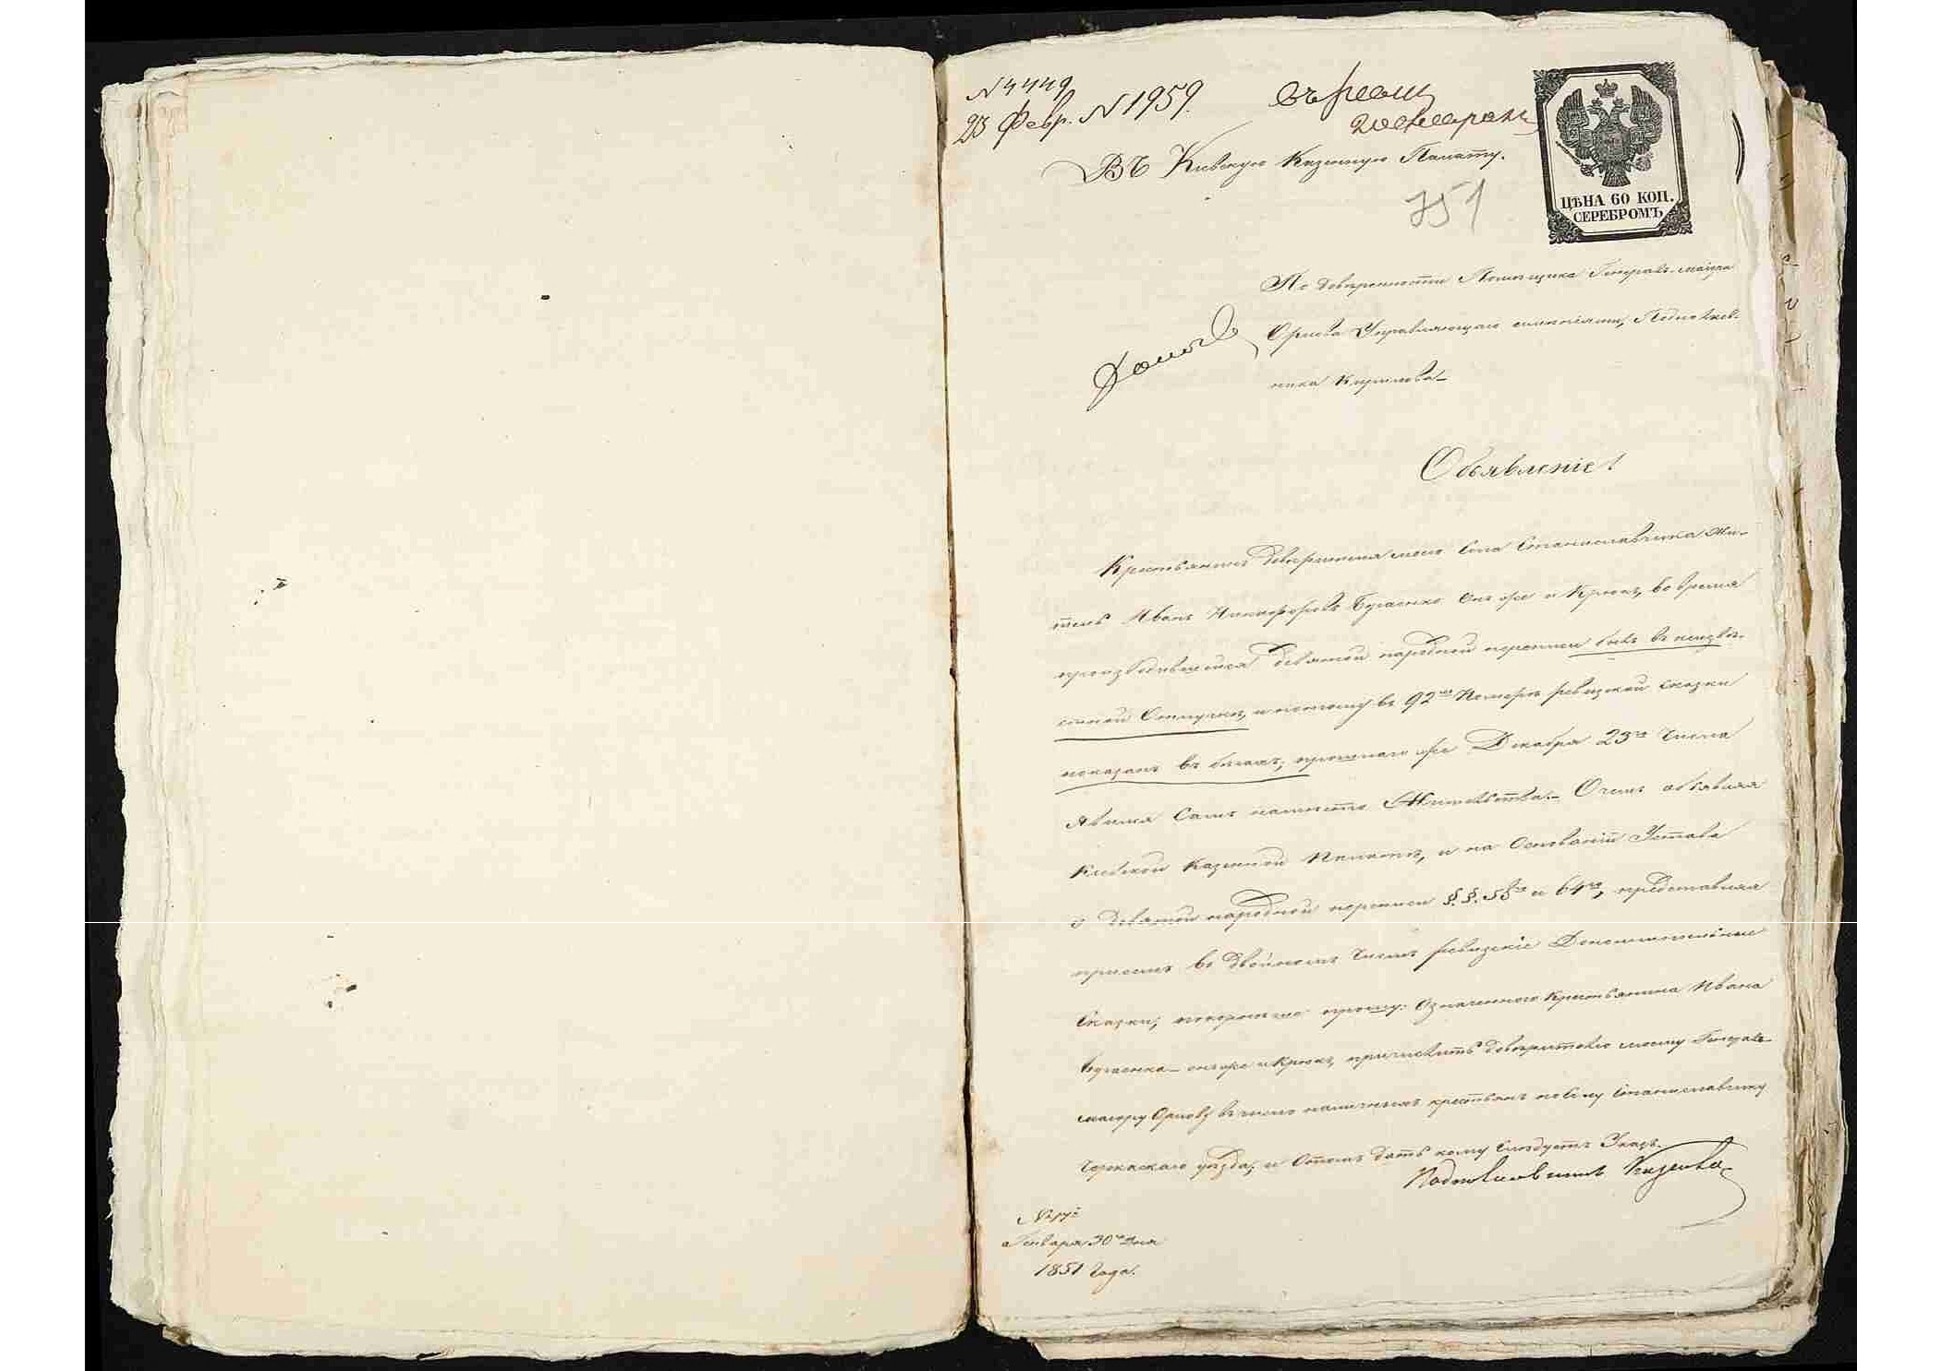 N 4449
23 Февр. N 1959.
Въ Кіевскую Казенную Палату.
751
ЦѢНА 60 КОП.
СЕРЕБРОМЪ
По довѣренности Помѣщика Генералъ-маіора
Орлова Управляющаго имѣніями, Подполков-
ника Кирилова
Объявленіе!
Крестьянинъ довѣрителя моего села Станиславчика жи-
тель Иванъ Никифоровъ Бугаенко онъ же и Крюкъ, во время
производившейся девятой народной переписи былъ въ неизвѣ-
стной Отлучкѣ, и потому въ 92мъ Номерѣ ревизской сказки
показанъ въ бѣгахъ, прошлаго же Декабря 23го числа
явился Самъ намѣсто Жительства. Очемъ объявляя
Кіевской Казенной Палатѣ, и на Основаніи Устава
о девятой народной переписи §.§. и 64го, представляя
присемъ въ двойномъ числѣ ревизскіе Дополнительные
Сказки, покорнѣйше прошу: Означеннаго Крестьянина Ивана
Бугаенка онъ же и Крюкъ, причислить довѣрителю моему Генералъ-
маіору Орлову въ число наличныхъ крестьянъ по селу Станиславчику
Черкаскаго уѣзда, и Отомъ дать кому слѣдуетъ Указъ.
Подполковникъ
Генваря 30го дня
1851 Года.